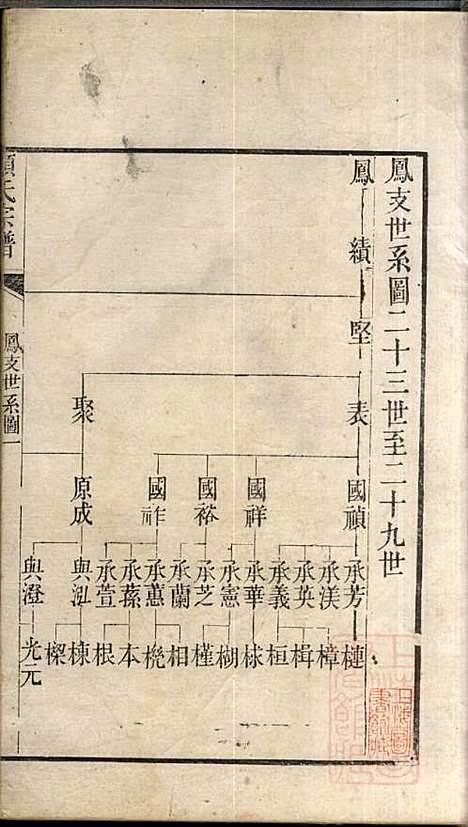 鳳支世系圖二十三世至二十九世
鳳
績
堅
表 聚
國禎 國祥 國裕 國祚 原成
承芳 承渼 承英 承義 承華 承憲 承芝 承蘭 承蕙 承蓀 承萱 與泓 與澄
槤 樟 楫 桓 梂 楜 槿 相 棁 本 根 棟 樑 光元
氏宗譜
鳳支世系圖一